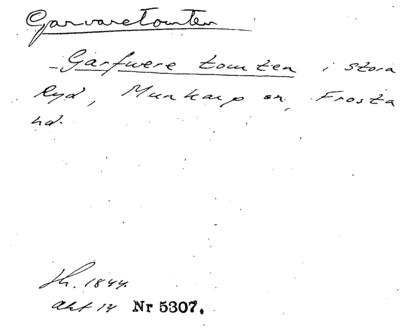 Garvaretomten
Garfwere tomten i stora
Ryd, Munkarp sn, Frosta
hd.
Lh. 1844.
Akt 14 Nr 5307.